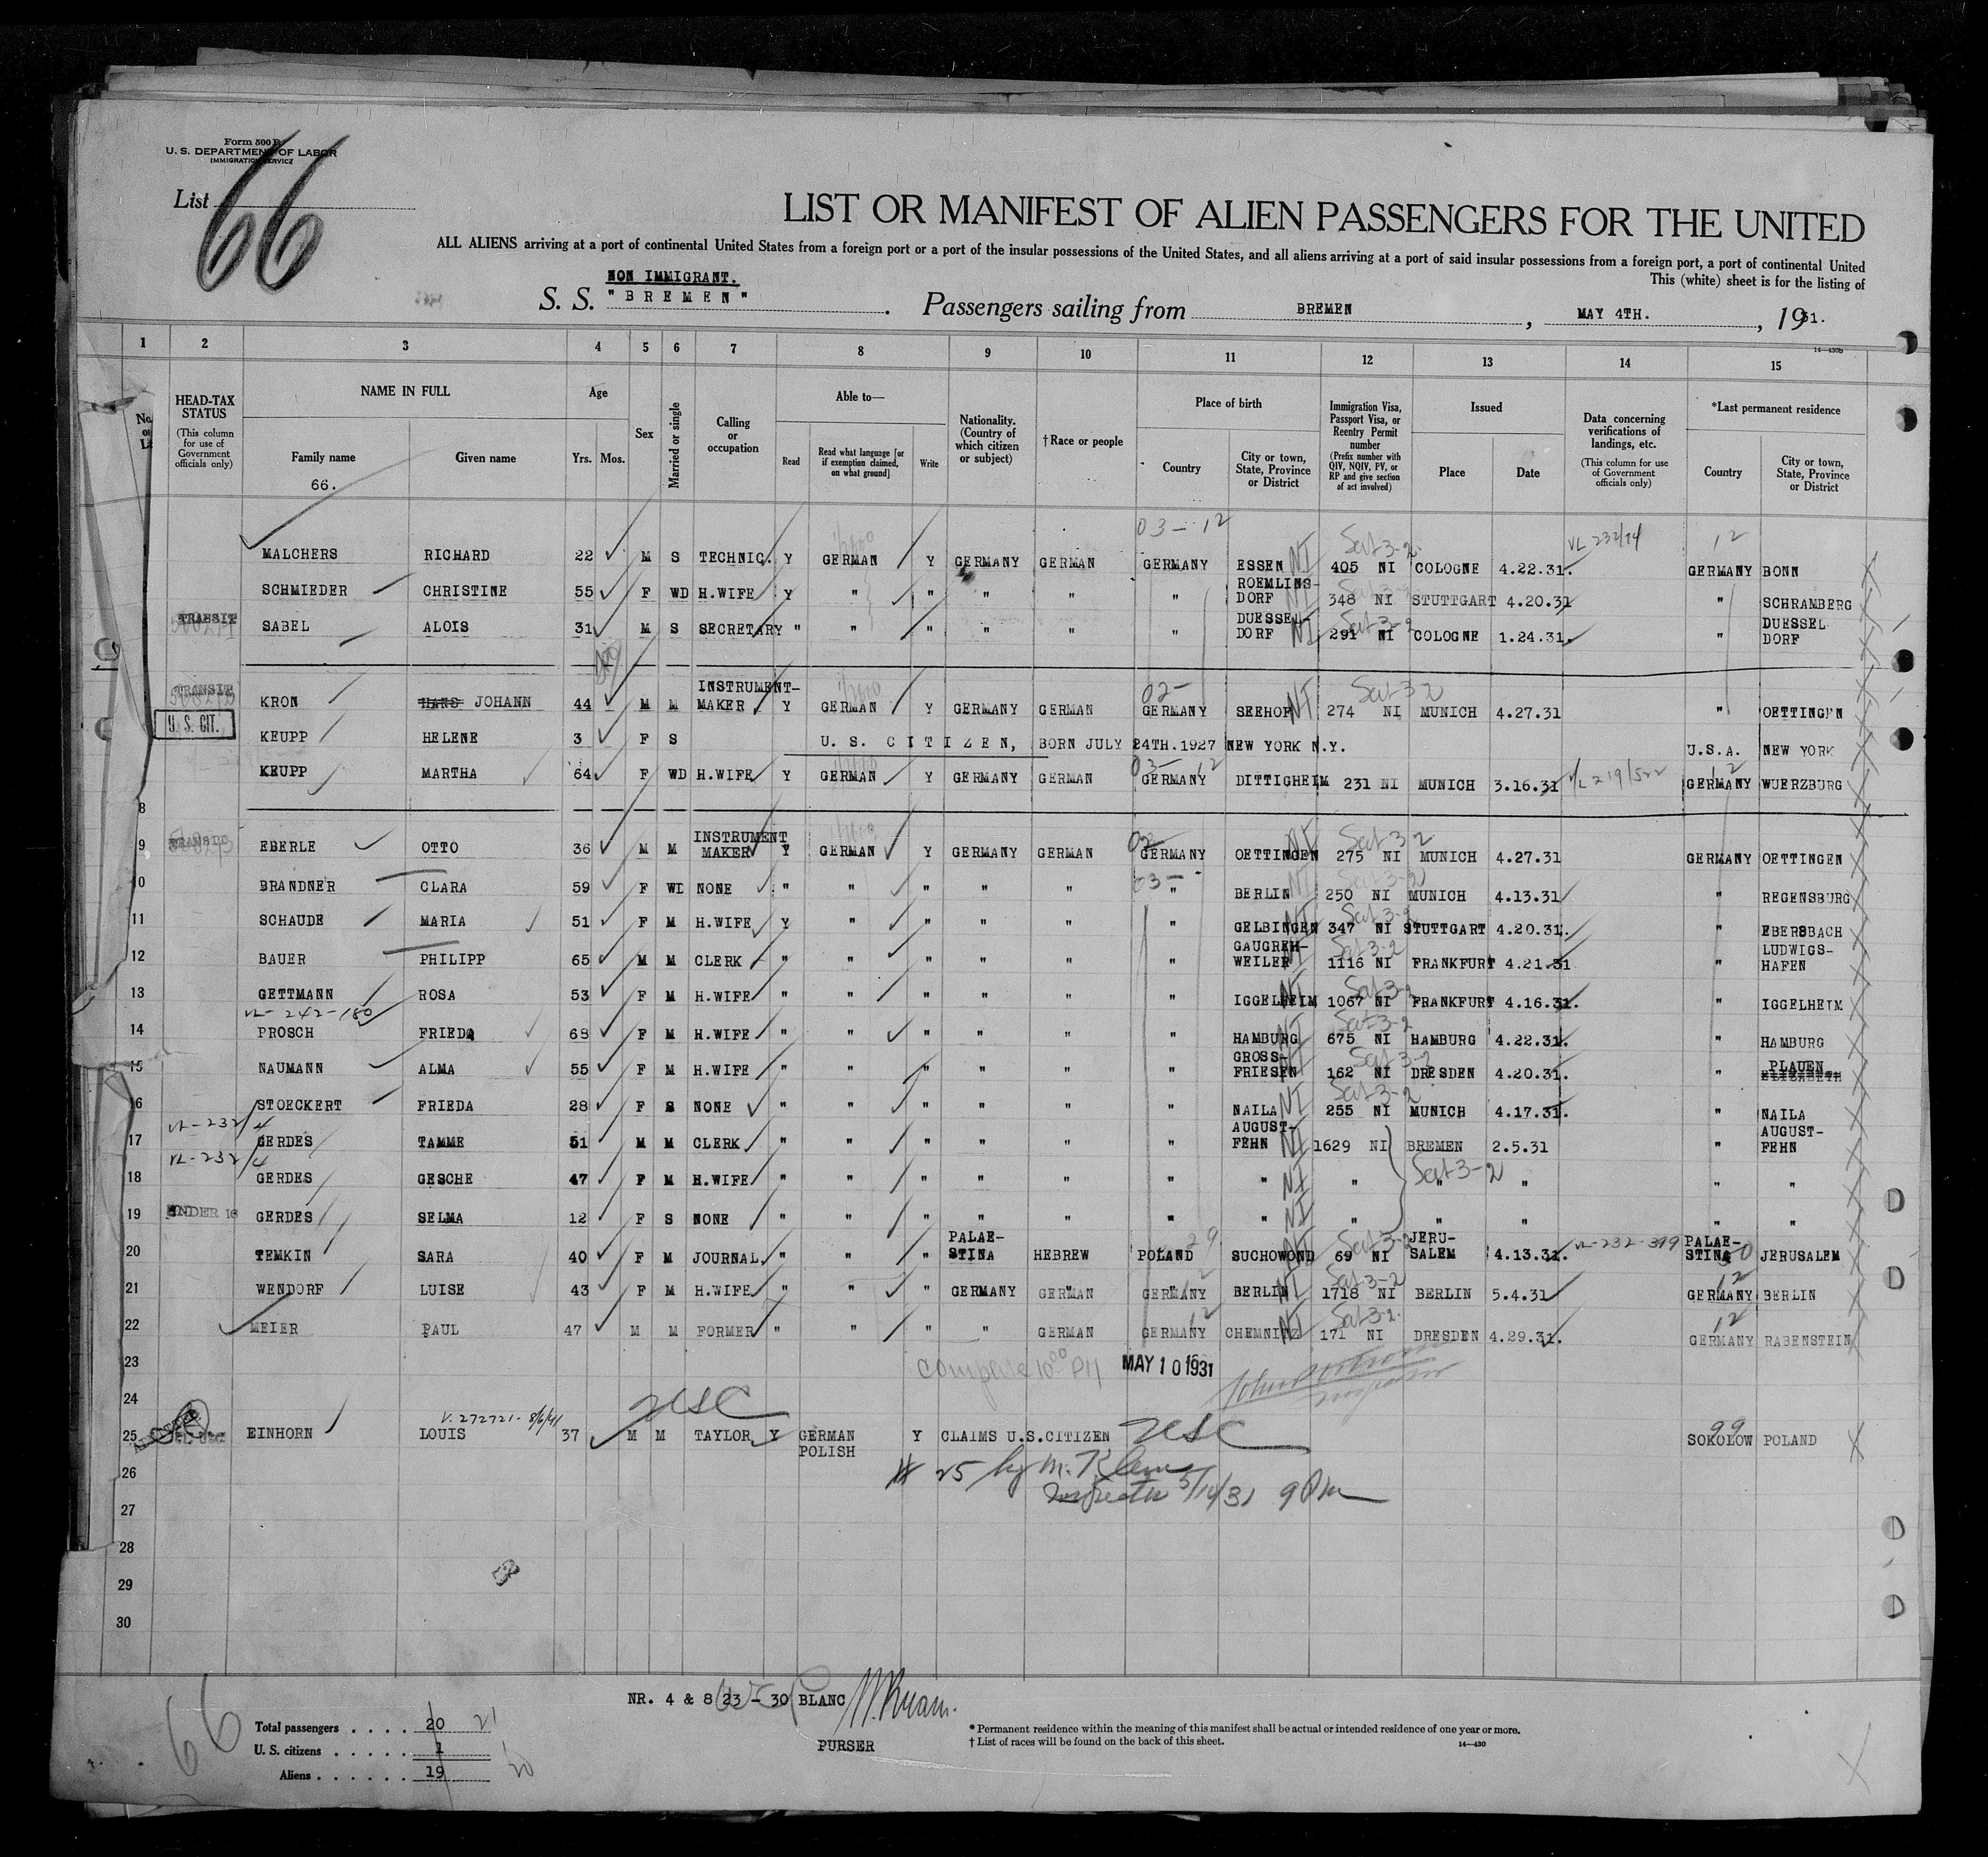 Form 500 B
U. S. DEPARTMENT OF LABOR
IMMIGRATION SERVICE
List 66
LIST OR MANIFEST OF ALIEN PASSENGERS FOR THE UNITED
ALL ALIENS arriving at a port of continental United States from a foreign port or a port of the insular possessions of the United States, and all aliens arriving at a port of said insular possessions from a foreign port, a port of continental United
This (white) sheet is for the listing of
NON IMMIGRANT.
S. S. "BREMEN" . Passengers sailing from BREMEN , MAY 4TH. , 1931.
14—430b
1 2 3 4 5 6 7 8 9 10 11 12 13 14 15
No. on List
HEAD-TAX STATUS (This column for use of Government officials only)
NAME IN FULL Family name Given name
66.
Age Yrs. Mos.
Sex
Married or single
Calling or occupation
Able to— Read Read what language [or if exemption claimed, on what ground] Write
Nationality. (Country of which citizen or subject)
†Race or people
Place of birth Country City or town, State, Province or District
Immigration Visa, Passport Visa, or Reentry Permit number (Prefix number with QIV, NQIV, PV, or RP and give section of act involved)
Issued Place Date
Data concerning verifications of landings, etc. (This column for use of Government officials only)
*Last permanent residence Country City or town, State, Province or District
03-12 VL 232/14 12
MALCHERS RICHARD 22 M S TECHNIC. Y GERMAN Y GERMANY GERMAN GERMANY ESSEN NI 405 NI COLOGNE 4.22.31. GERMANY BONN
SCHMIEDER CHRISTINE 55 F WD H.WIFE Y " " " " " ROEMLINS-DORF 348 NI STUTTGART 4.20.31 " SCHRAMBERG
TRANSIT SABEL ALOIS 31 M S SECRETARY " " " " " " DUESSEL-DORF NI 291 NI COLOGNE 1.24.31. " DUESSEL DORF
TRANSIT KRON HANS JOHANN 44 M M INSTRUMENT-MAKER Y GERMAN Y GERMANY GERMAN 02- GERMANY SEEHOF NI 274 NI MUNICH 4.27.31 " OETTINGEN
U. S. CIT. KEUPP HELENE 3 F S U. S. CITIZEN, BORN JULY 24TH.1927 NEW YORK N.Y. U.S.A. NEW YORK
KEUPP MARTHA 64 F WD H.WIFE Y GERMAN Y GERMANY GERMAN 03-12 GERMANY DITTIGHEIM 231 NI MUNICH 3.16.31 VL 219/522 12 GERMANY WUERZBURG
8
9 TRANSIT EBERLE OTTO 36 M M INSTRUMENT MAKER Y GERMAN Y GERMANY GERMAN 02- GERMANY OETTINGEN 275 NI MUNICH 4.27.31 GERMANY OETTINGEN
10 BRANDNER CLARA 59 F WD NONE " " " " " 03- " BERLIN 250 NI MUNICH 4.13.31 " REGENSBURG
11 SCHAUDE MARIA 51 F M H.WIFE Y " " " " " GELBINGEN 347 NI STUTTGART 4.20.31. " EBERSBACH
12 BAUER PHILIPP 65 M M CLERK " " " " " " GAUGREH-WEILER 1116 NI FRANKFURT 4.21.31 " LUDWIGS-HAFEN
13 GETTMANN ROSA 53 F M H.WIFE " " " " " " IGGELHEIM 1067 NI FRANKFURT 4.16.31. " IGGELHEIM
VL-242-180
14 PROSCH FRIEDA 68 F M H.WIFE " " " " " " HAMBURG 675 NI HAMBURG 4.22.31. " HAMBURG
15 NAUMANN ALMA 55 F M H.WIFE " " " " " " GROSS-FRIESEN 162 NI DRESDEN 4.20.31. " PLAUEN ELIZABETH
16 STOECKERT FRIEDA 28 F S NONE " " " " " " NAILA NI 255 NI MUNICH 4.17.31. " NAILA
VL-232/4
17 GERDES TAMME 51 M M CLERK " " " " " " AUGUST-FEHN NI 1629 NI BREMEN 2.5.31 " AUGUST-FEHN
VL-232/4
18 GERDES GESCHE 47 F M H.WIFE " " " " " " " NI " " " " "
19 UNDER 16 GERDES SELMA 12 F S NONE " " " " " " " NI " " " " "
20 TEMKIN SARA 40 F M JOURNAL. " " " PALAE-STINA HEBREW POLAND SUCHOWOND 69 NI JERU-SALEM 4.13.31. VL-232-399 PALAE-STINA JERUSALEM
21 WENDORF LUISE 43 F M H.WIFE " " " GERMANY GERMAN GERMANY BERLIN NI 1718 NI BERLIN 5.4.31 12 GERMANY BERLIN
22 MEIER PAUL 47 M M FORMER " " " " GERMAN GERMANY CHEMNITZ 171 NI DRESDEN 4.29.31. 12 GERMANY RABENSTEIN
23 Complete 10 00 PM MAY 10 1931
24 USC
V. 272721- 8/6/41
25 EINHORN LOUIS 37 M M TAYLOR Y GERMAN POLISH Y CLAIMS U.S.CITIZEN USC 99 SOKOLOW POLAND
26 # 25 by M. Klein
27 Inspector 5/10/31 9 PM
28
29
30
NR. 4 & 8 23 - 30 BLANC
PURSER
66
Total passengers . . . . 20 21
U. S. citizens . . . . . 1
Aliens . . . . . . 19 20
* Permanent residence within the meaning of this manifest shall be actual or intended residence of one year or more.
† List of races will be found on the back of this sheet.
14—430